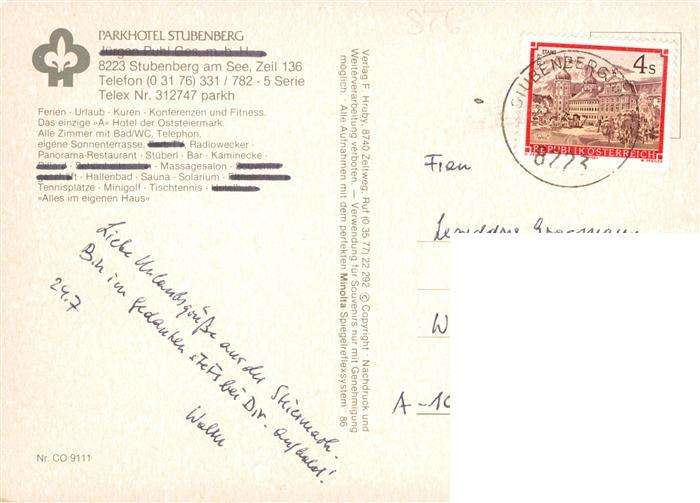 PARKHOTEL STUBENBERG
Jürgen Puhl Ges. m. b. H.
8223 Stubenberg am See, Zeil 136
Telefon (0 31 76) 331 / 782 - 5 Serie
Telex Nr. 312747 parkh
Ferien · Urlaub · Kuren · Konferenzen und Fitness.
Das einzige »A« Hotel der Oststeiermark.
Alle Zimmer mit Bad/WC, Telephon,
eigene Sonnenterrasse, Radiowecker ·
Panorama-Restaurant · Stüberl · Bar · Kaminecke ·
· Massagesalon ·
· Hallenbad · Sauna · Solarium ·
Tennisplätze · Minigolf · Tischtennis ·
»Alles im eigenen Haus«
Liebe Urlaubsgrüße aus der Steiermark.
Bin im Gedanken stets bei Dir - auf bald!
24.7
Walter
Nr. CO 9111
Verlag F. Hruby, 8740 Zeltweg, Ruf (0 35 77) 22 292 © Copyright · Nachdruck und
Weiterverarbeitung verboten. — Verwendung für Souvenirs nur mit Genehmigung
möglich. Alle Aufnahmen mit dem perfekten Minolta Spiegelreflexsystem 86
STUBENBERG
8223
4 S
REPUBLIK ÖSTERREICH
Frau
W
A-10